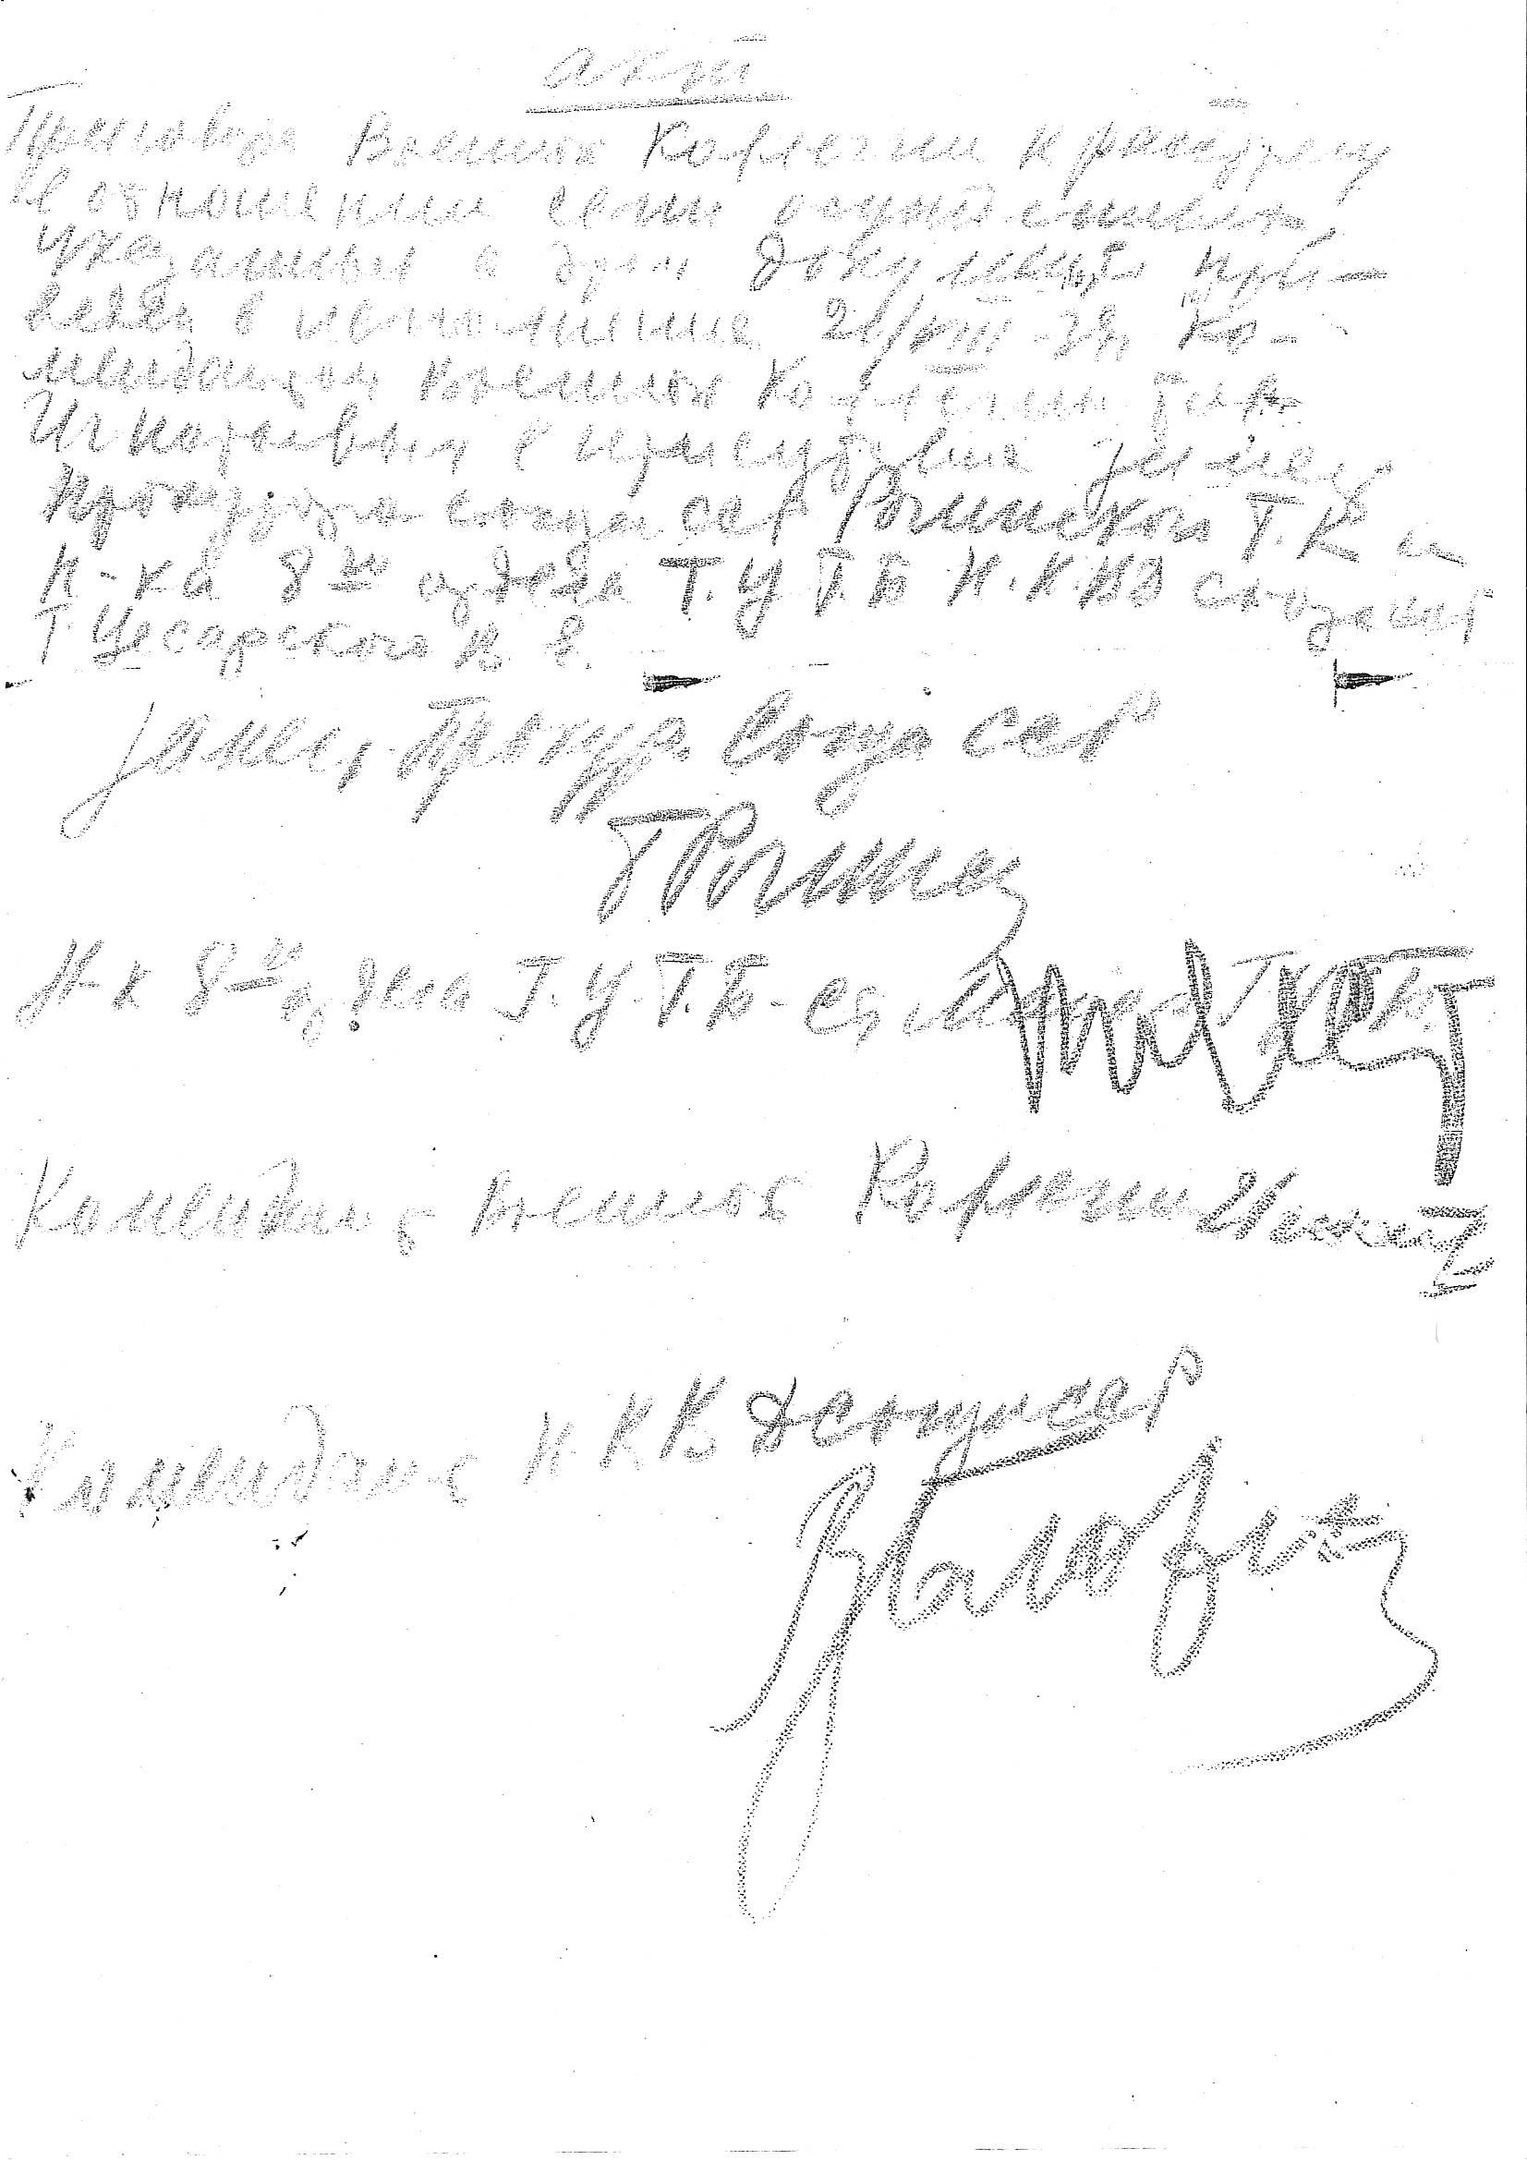 акт
Приговора Военной Коллегии к расстрелу
в отношении семи осужденных,
указанных в этом документе при-
веден в исполнение 21/VIII-37г. Ко-
мендантом Военной Коллегии
Игнатьевым в присутствии замест.
Прокурора союза сср Рогинского Г.К и
Н-ка 8го отдела Г.У Г.Б Н.К.ВД союза сср
т. Цесарского В. Е.
Замест. Прокур. Союза сср
ГРогинс
Н-к 8го отдела Г.У.Г.Б-
Комендант Военной Коллегии Игнат
Комендант Н.К.В Д союза сср